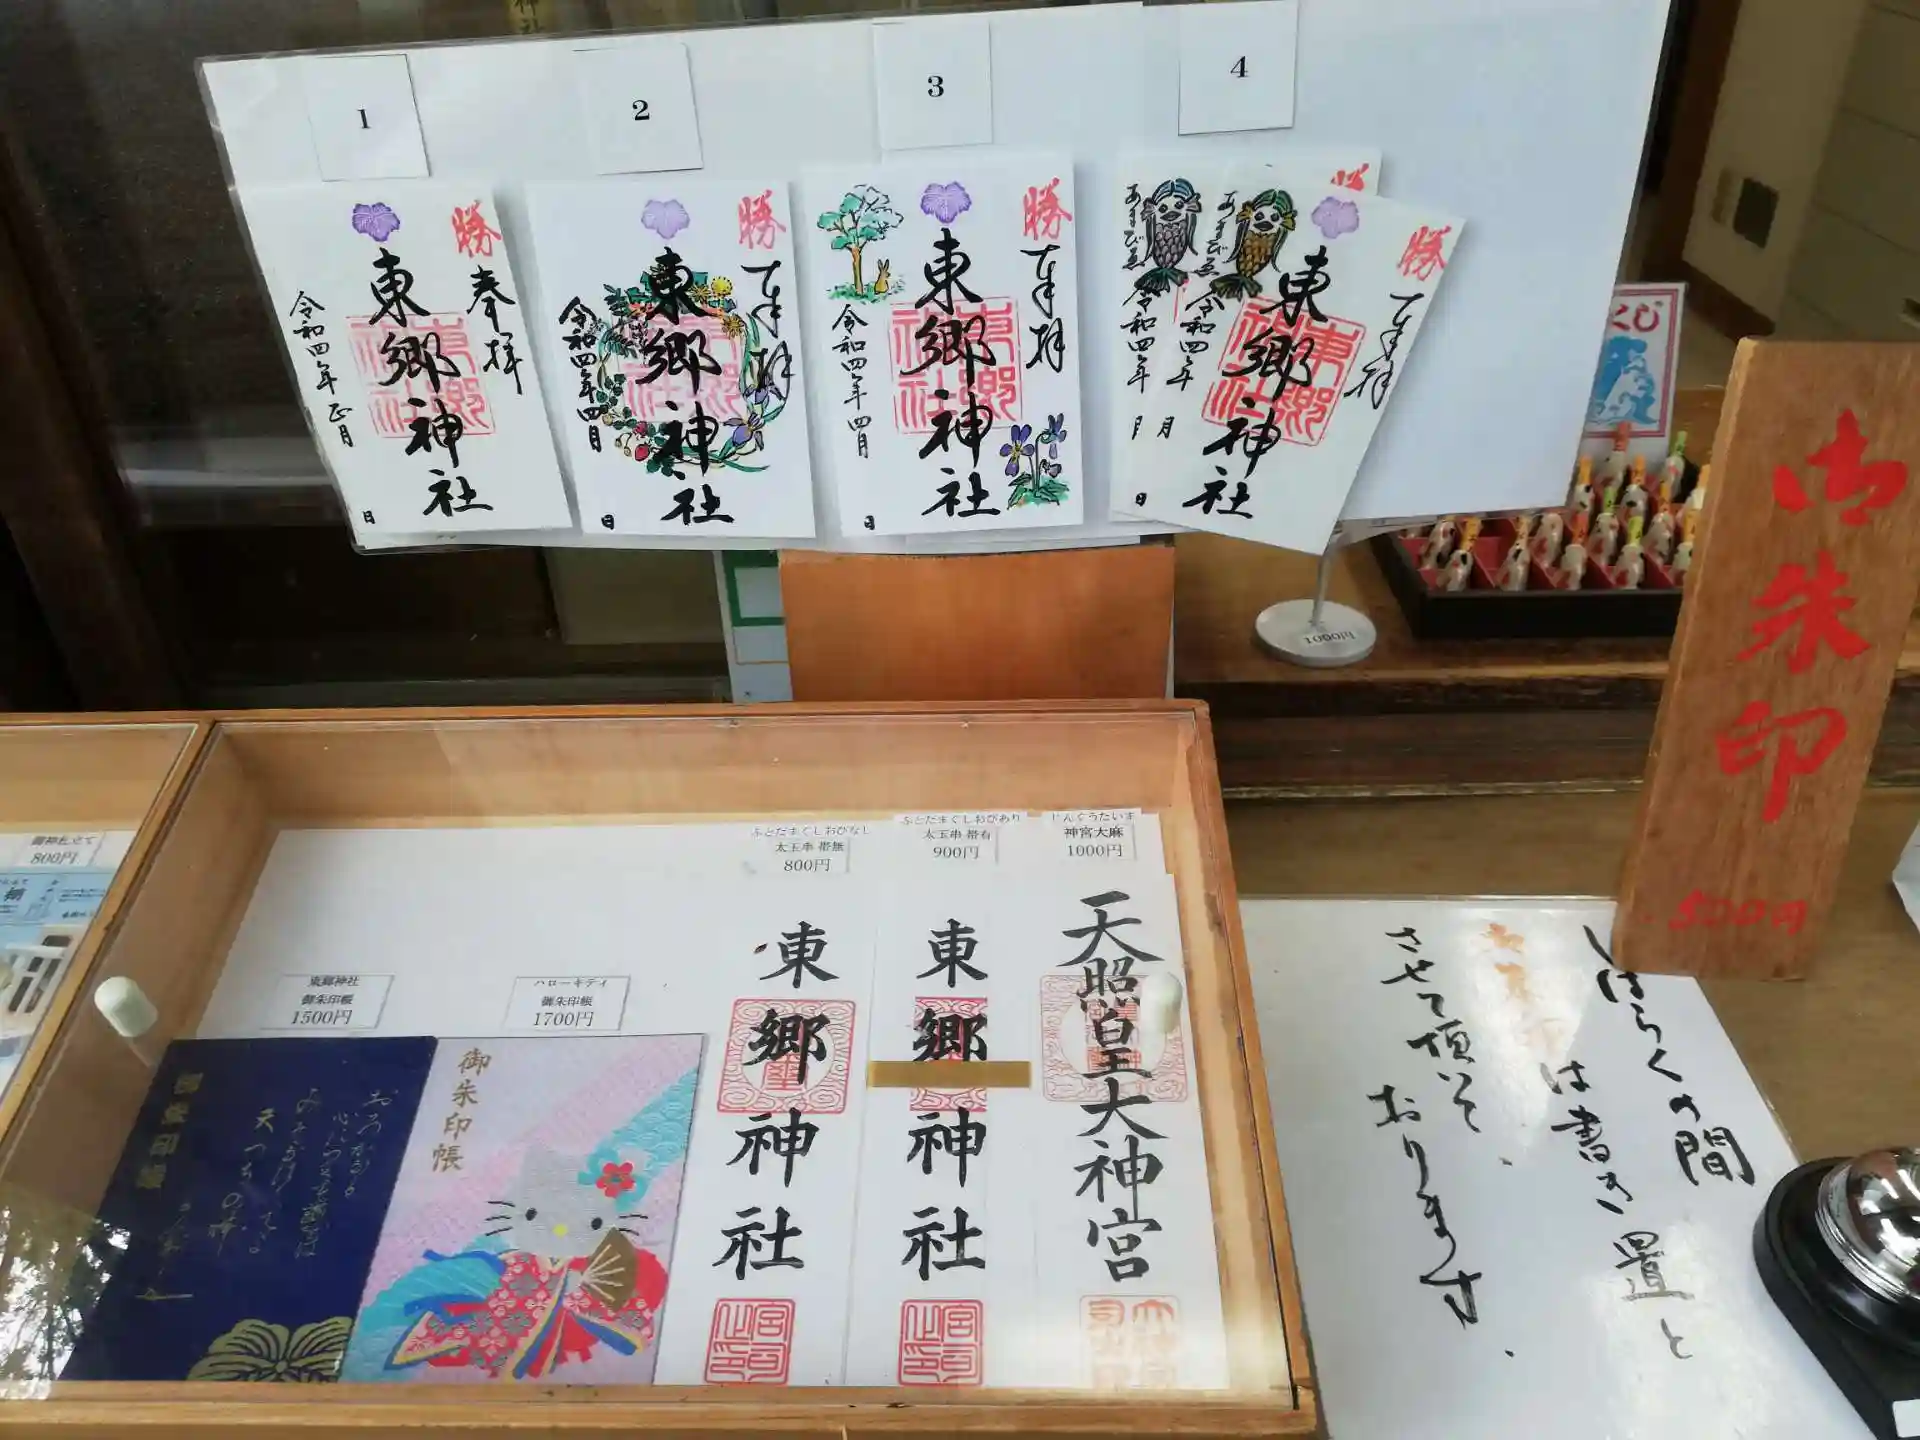 1
2
3
4
勝
奉拝
東郷神社
令和四年 正月
日
勝
奉拝
東郷神社
令和四年四月
日
勝
奉拝
東郷神社
令和四年四月
日
あまびゑ
令和四年 月
日
勝
奉拝
東郷神社
あまびゑ
令和四年 月
くじ
1000円
御朱印
500円
800円
東郷神社
御朱印帳
1500円
ハローキティ
御朱印帳
1700円
ふとだまぐしおびなし
太玉串 帯無
800円
ふとだまぐしおびあり
太玉串 帯有
900円
じんぐうたいま
神宮大麻
1000円
御朱印帳
東郷神社
東郷神社
天照皇大神宮
しばらくの間
御朱印は書き置きと
させて頂いて
おります